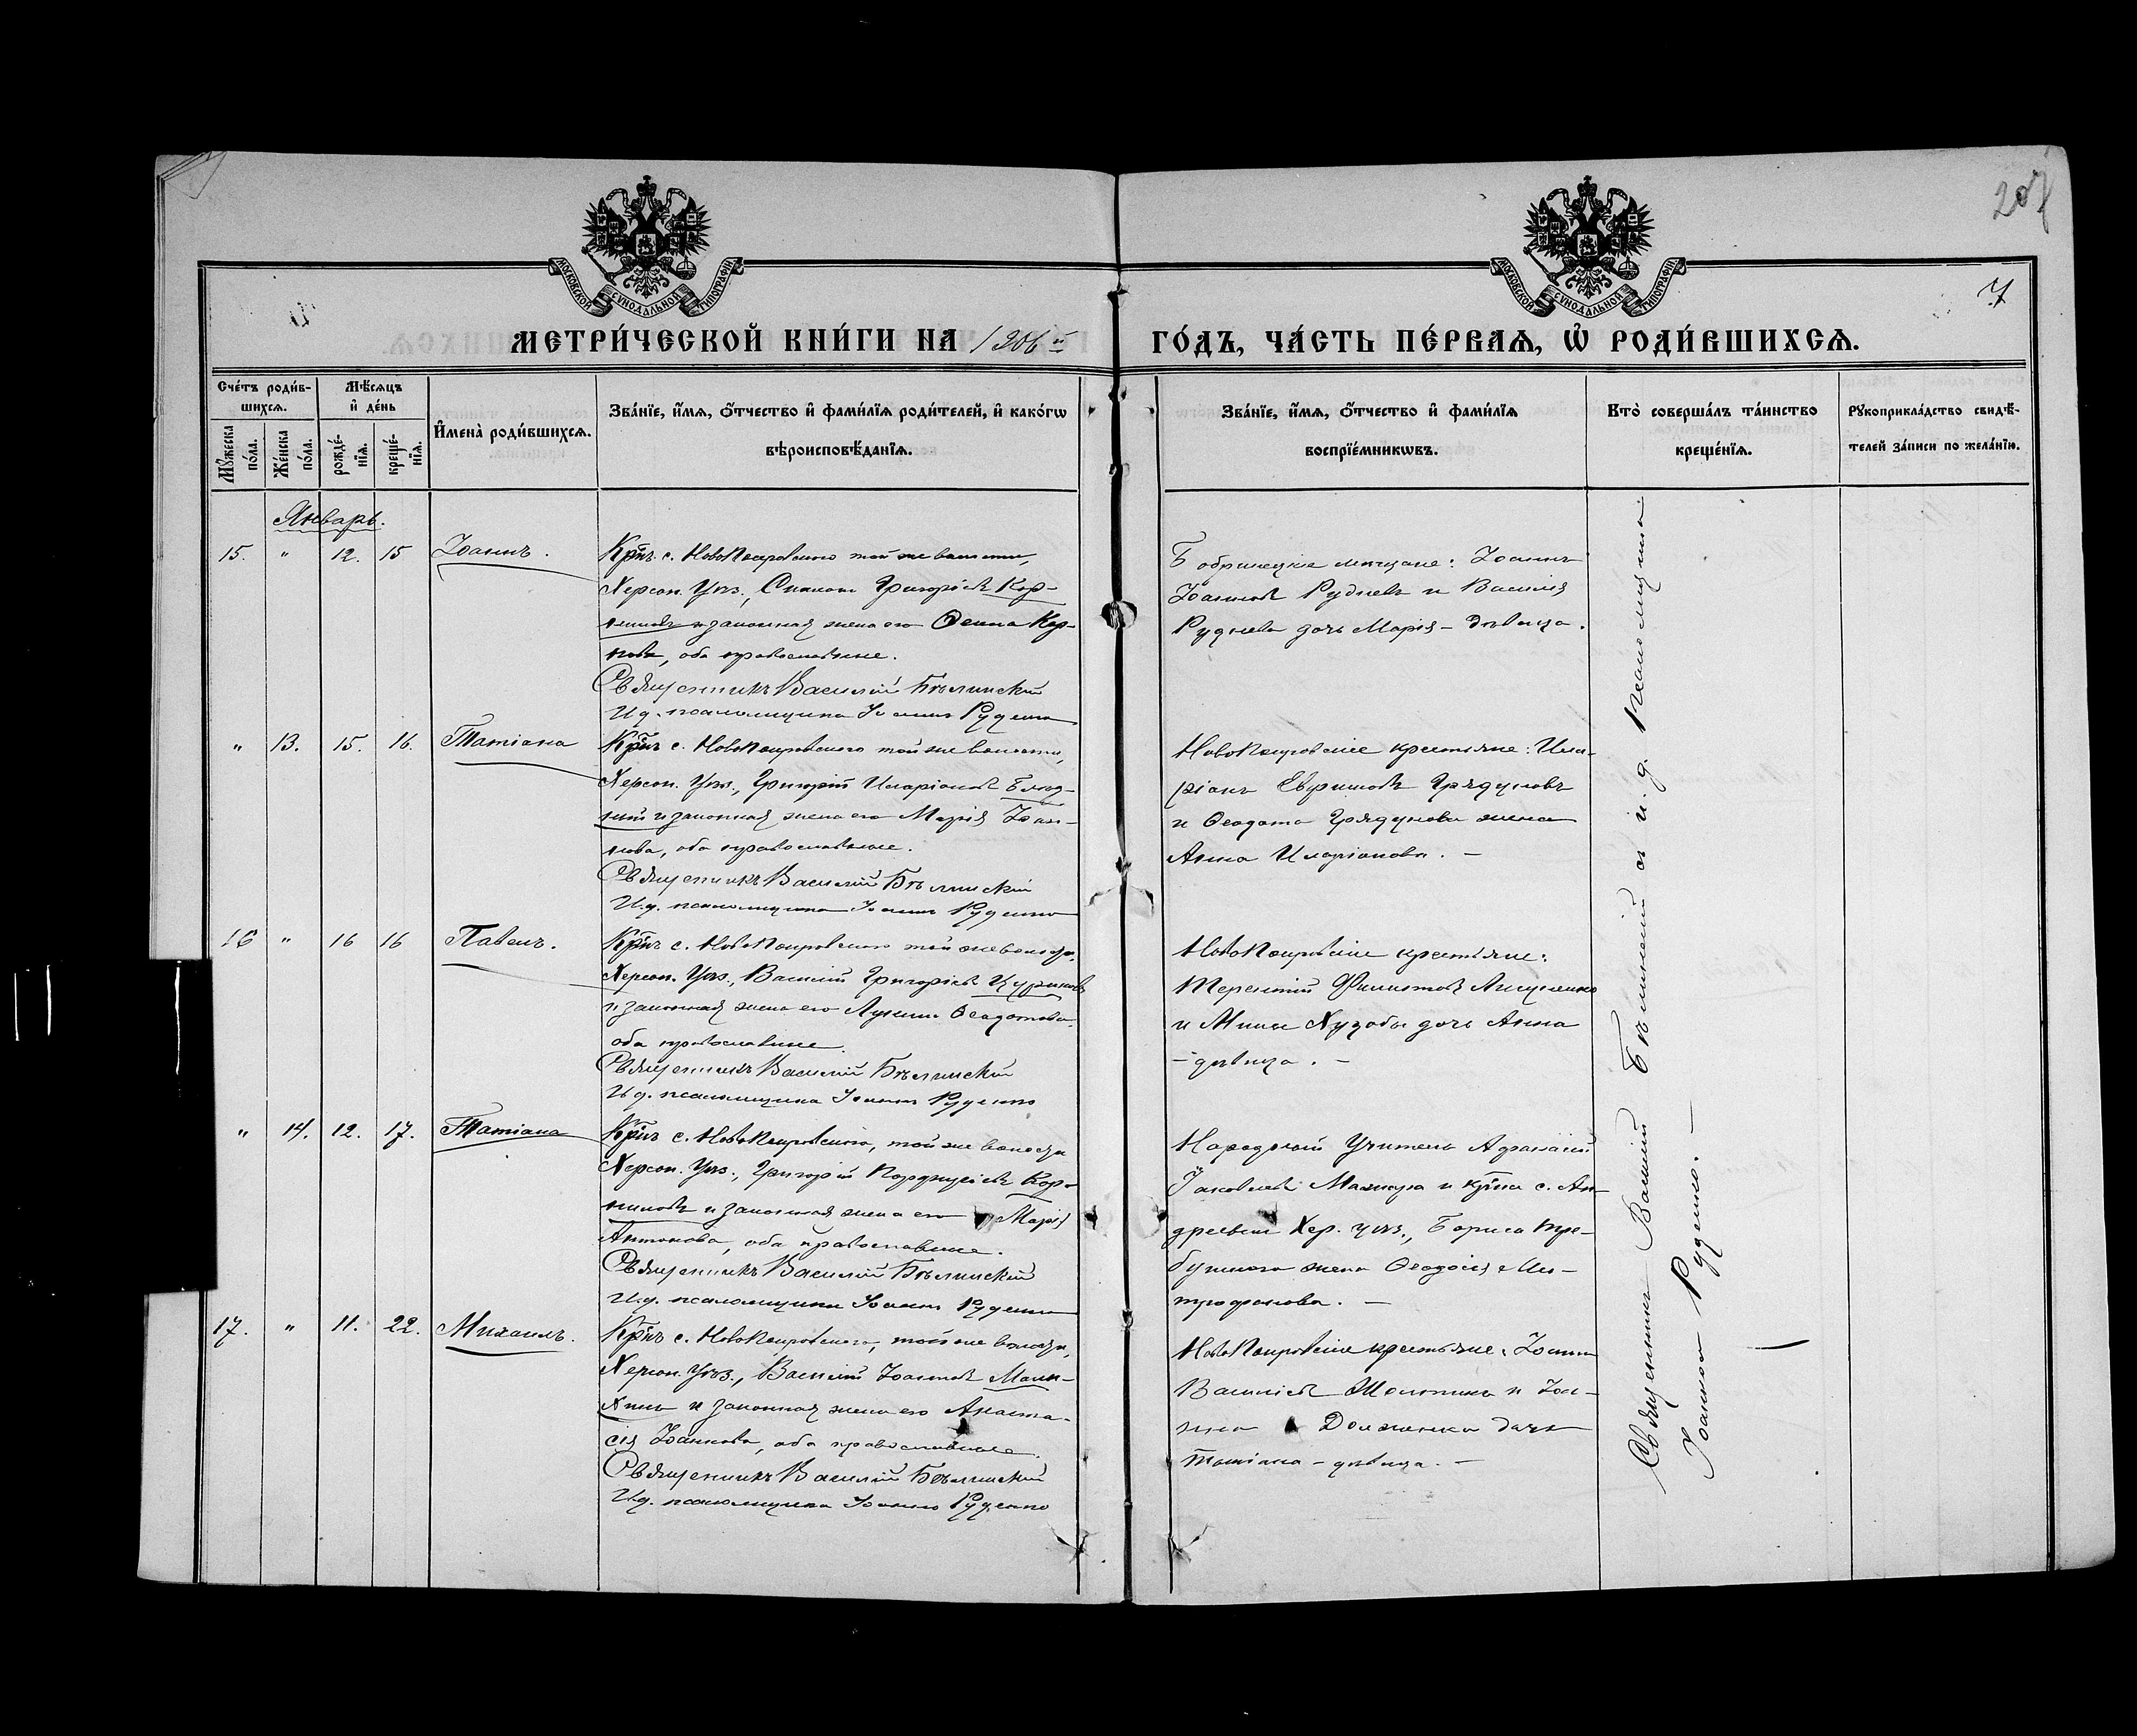 207
7
МОСКОВСКОЙ СѴНОДАЛЬНОЙ ТИПОГРАФІИ
МОСКОВСКОЙ СѴНОДАЛЬНОЙ ТИПОГРАФІИ
МЕТРИ́ЧЕСКОЙ КНИ́ГИ НА 1906й ГО́ДЪ, ЧА́СТЬ ПЕ́РВАѦ, Ѽ РОДИ́ВШИХСѦ.
Сче́тъ роди́в-
шихсѧ.
Мꙋ́жеска по́ла.
Же́нска по́ла.
Мѣ́сѧцъ
и҆ де́нь
рожде́-
нїѧ.
креще́-
нїѧ.
И҆мена̀ роди́вшихсѧ.
Зва́нїе, и҆́мѧ, ѻ҆́тчество и҆ фами́лїѧ роди́телей, и҆ како́гѡ
вѣроисповѣ́данїѧ.
Зва́нїе, и҆́мѧ, ѻ҆́тчество и҆ фами́лїѧ
воспрїе́мникѡвъ.
Кто̀ соверша́лъ та́инство
креще́нїѧ.
Рꙋкоприкла́дство свидѣ́-
телей за́писи по жела́нїю.
Январь.
15. " 12. 15 Іоаннъ.
Кр̃нъ с. НовоПокровского той же волости,
Херсон. Уѣз., Григоріевъ Кор-
и законная жена его Кор-
оба православные.
Священникъ Василій Бѣлинскій
И. д. псаломщика Іоаннъ Руденко
Бобринецкіе мѣщане: Іоаннъ
Іоанновъ Рудневъ и Василія
Руднева дочь Марія - дѣвица.
" 13. 15. 16. Татіана
Кр̃нъ с. НовоПокровского той же волости,
Херсон. Уѣз., Григорій Иларіоновъ
и законная жена его Марія Іоан-
нова, оба православные.
Священникъ Василій Бѣлинскій
И. д. псаломщика Іоаннъ Руденко
НовоПокровскіе крестьяне: Ила-
ріонъ
и жена
Анна Иларіонова. -
16 " 16 16 Павелъ.
Кр̃нъ с. НовоПокровского той же волости,
Херсон. Уѣз., Василій Григоріевъ Цуркановъ
и законная жена его
оба православные.
Священникъ Василій Бѣлинскій
И. д. псаломщика Іоаннъ Руденко
НовоПокровскіе крестьяне:
Терентій
и Мины Худобы дочь Анна
- дѣвица. -
" 14. 12. 17. Татіана
Кр̃нъ с. НовоПокровского, той же волости
Херсон. Уѣз., Григорій Порфиріевъ Кор-
и законная жена его Марія
Антонова, оба православные.
Священникъ Василій Бѣлинскій
И. д. псаломщика Іоаннъ Руденко
Народный Учитель Афанасій
Іаковлевъ и с. Ан-
Хер. уѣз., Бориса Тре-
жена Ми-
трофанова. -
17. " 11. 22. Михаилъ.
Кр̃нъ с. НовоПокровского, той же волости,
Херсон. Уѣз., Василій Іоанновъ
и законная жена его Анаста-
сія Іоаннова, оба православные.
Священникъ Василій Бѣлинскій
И. д. псаломщика Іоаннъ Руденко
НовоПокровскіе крестьяне: Іоаннъ
Василіевъ и Іоа-
нна Долженка дочь
Татіана - дѣвица. -
Священникъ Василій Бѣлинскій съ и. д. псаломщика
Іоанномъ Руденко. -